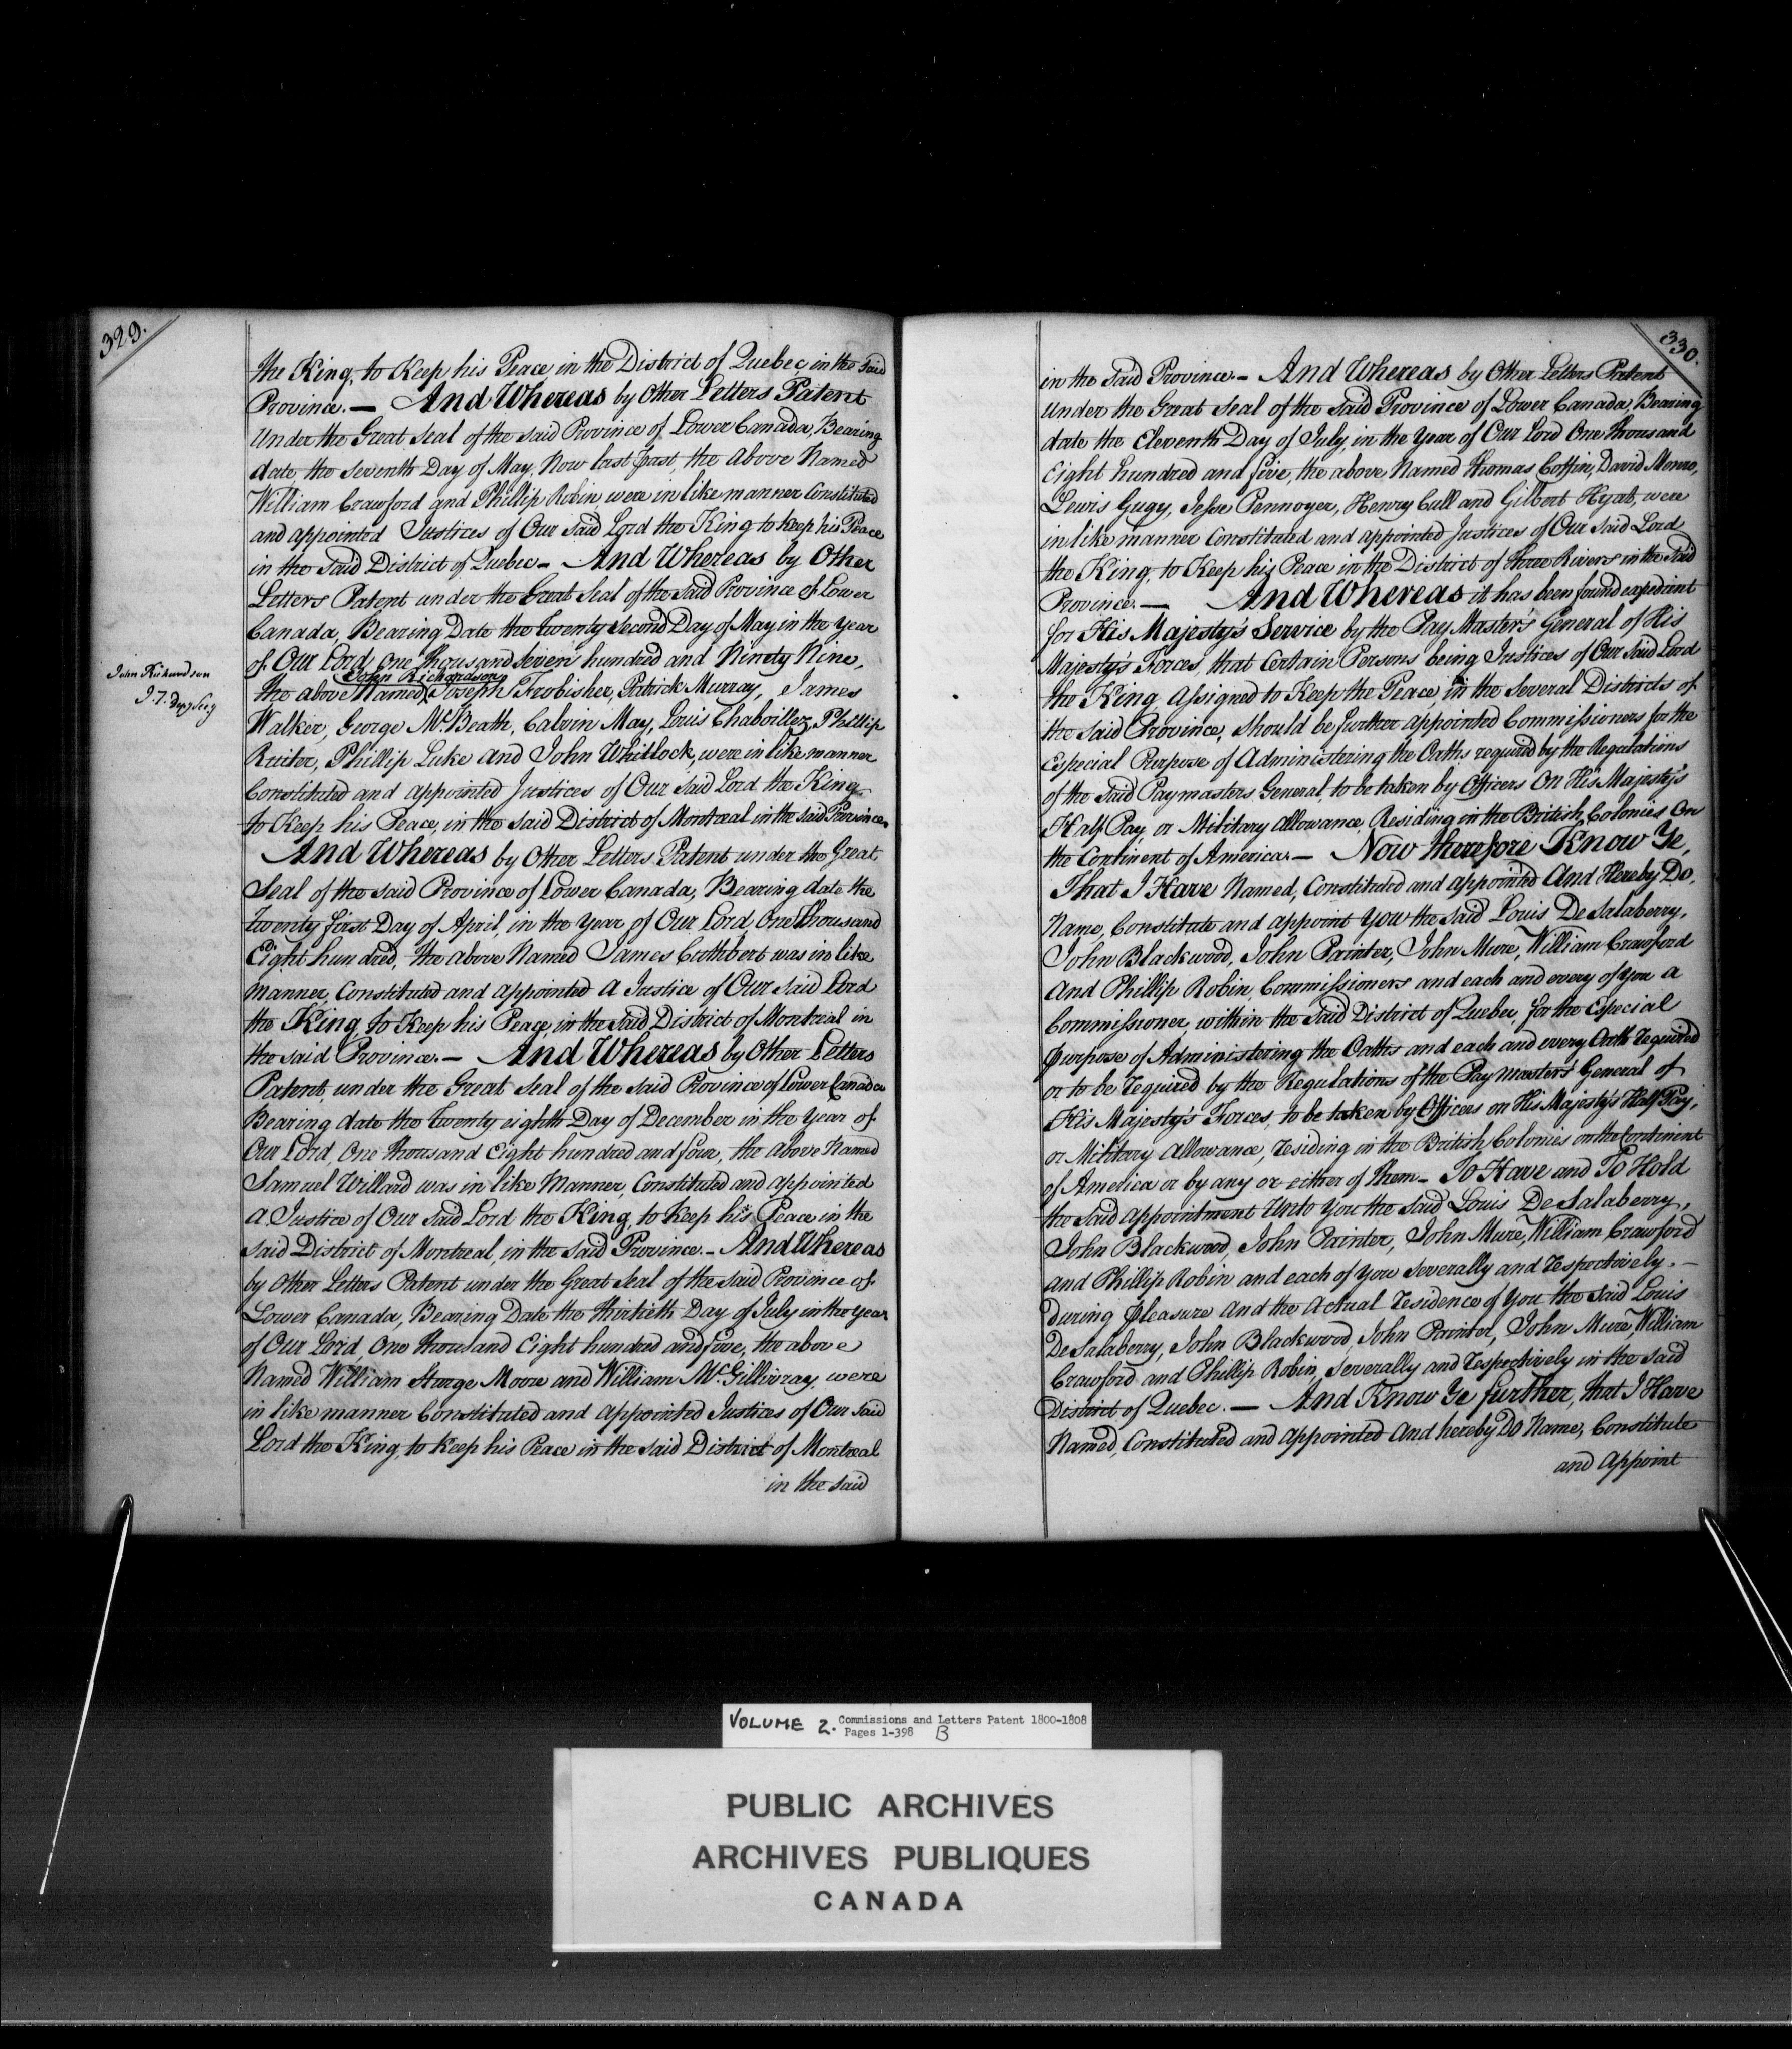 329.
the King, to Keep his Peace in the District of Quebec, in the said
Province. — And Whereas by Other Letters Patent
Under the Great Seal of the said Province of Lower Canada, Bearing
date, the Seventh Day of May, Now last past, the above Named
William Crawford and Phillip Robin, were in like manner Constituted
and appointed Justices of Our said Lord the King to keep his Peace
in the said District of Quebec — And Whereas by Other
Letters Patent under the Great Seal of the said Province of Lower
Canada, Bearing Date the Twenty Second Day of May in the Year
of Our Lord, One Thousand Seven hundred and Ninety Nine,
John Richardson
John Richardson
the above Named Joseph Frobisher, Patrick Murray, James
Walker, George McBeath, Calvin May, Louis Chaboillez, Phillip
Ruiter, Phillip Luke and John Whitlock, were in like manner
Constituted and appointed Justices of Our said Lord the King
to Keep his Peace, in the said District of Montreal in the said Province.
And Whereas by Other Letters Patent under the Great
Seal of the said Province of Lower Canada, Bearing date the
Twenty first Day of April, in the Year of Our Lord, One Thousand
Eight hundred, the above Named James Cuthbert was in like
manner, Constituted and appointed a Justice of Our said Lord
the King, to Keep his Peace, in the said District of Montreal in
the said Province. — And Whereas by Other Letters
Patent, under the Great Seal of the said Province of Lower Canada
Bearing date the Twenty eighth Day of December in the Year of
Our Lord, One thousand Eight hundred and four, the above Named
Samuel Willard was in like Manner, Constituted and appointed
a Justice of Our said Lord the King, to keep his Peace in the
said District of Montreal, in the said Province. — And Whereas
by Other Letters Patent under the Great Seal of the said Province of
Lower Canada, Bearing Date the Thirtieth Day of July in the Year
of Our Lord, One thousand Eight hundred and five, the above
Named William Sturge Moore and William McGillivray, were
in like manner Constituted and appointed Justices of Our said
Lord the King, to keep his Peace in the said District of Montreal
in the said
330.
in the said Province. — And Whereas by Other Letters Patent
under the Great Seal of the said Province of Lower Canada, Bearing
date the Eleventh Day of July, in the Year of Our Lord One thousand
Eight hundred and five, the above Named Thomas Coffin, David Monro,
Lewis Gugy, Jesse Pennoyer, Henry Cull and Gilbert Hyatt, were
in like manner Constituted and appointed Justices of Our said Lord
the King, to Keep his Peace in the District of Three Rivers in the said
Province. — And Whereas it has been found expedient
for His Majesty's Service by the Pay Master's General of His
Majesty's Forces, that Certain Persons being Justices of Our said Lord
the King, assigned to Keep the Peace, in the Several Districts of
the said Province, should be further appointed Commissioners for the
Especial Purpose of Administering the Oaths required by the Regulations
of the said Paymasters General, to be taken by Officers On His Majesty's
Half Pay, or Military allowance, Residing in the British Colonies On
the Continent of America. — Now therefore Know Ye,
That I Have Named, Constituted and appointed And Hereby Do,
Name, Constitute and appoint You the said Louis De Salaberry,
John Blackwood, John Painter, John Mure, William Crawford
And Phillip Robin, Commissioners and each and every of you a
Commissioner, within the said District of Quebec, for the Especial
purpose of Administering the Oaths and each and every Oath required
or to be required by the Regulations of the Pay master's General of
His Majesty's Forces, to be taken by Officers on His Majesty's Half Pay,
or Military Allowance, residing in the British Colonies on the Continent
of America or by any or either of them — To Have and To Hold
the said appointment Unto You the said Louis De Salaberry,
John Blackwood, John Painter, John Mure, William Crawford
and Phillip Robin and each of you Severally and respectively. —
during Pleasure and the Actual residence of You the said Louis
De Salaberry, John Blackwood, John Painter, John Mure, William
Crawford and Phillip Robin, severally and respectively in the said
District of Quebec. — And Know Ye further, that I Have
Named, Constituted and appointed And hereby Do Name, Constitute
and Appoint
VOLUME 2. Commissions and Letters Patent 1800-1808
Pages 1-398 B
PUBLIC ARCHIVES
ARCHIVES PUBLIQUES
CANADA